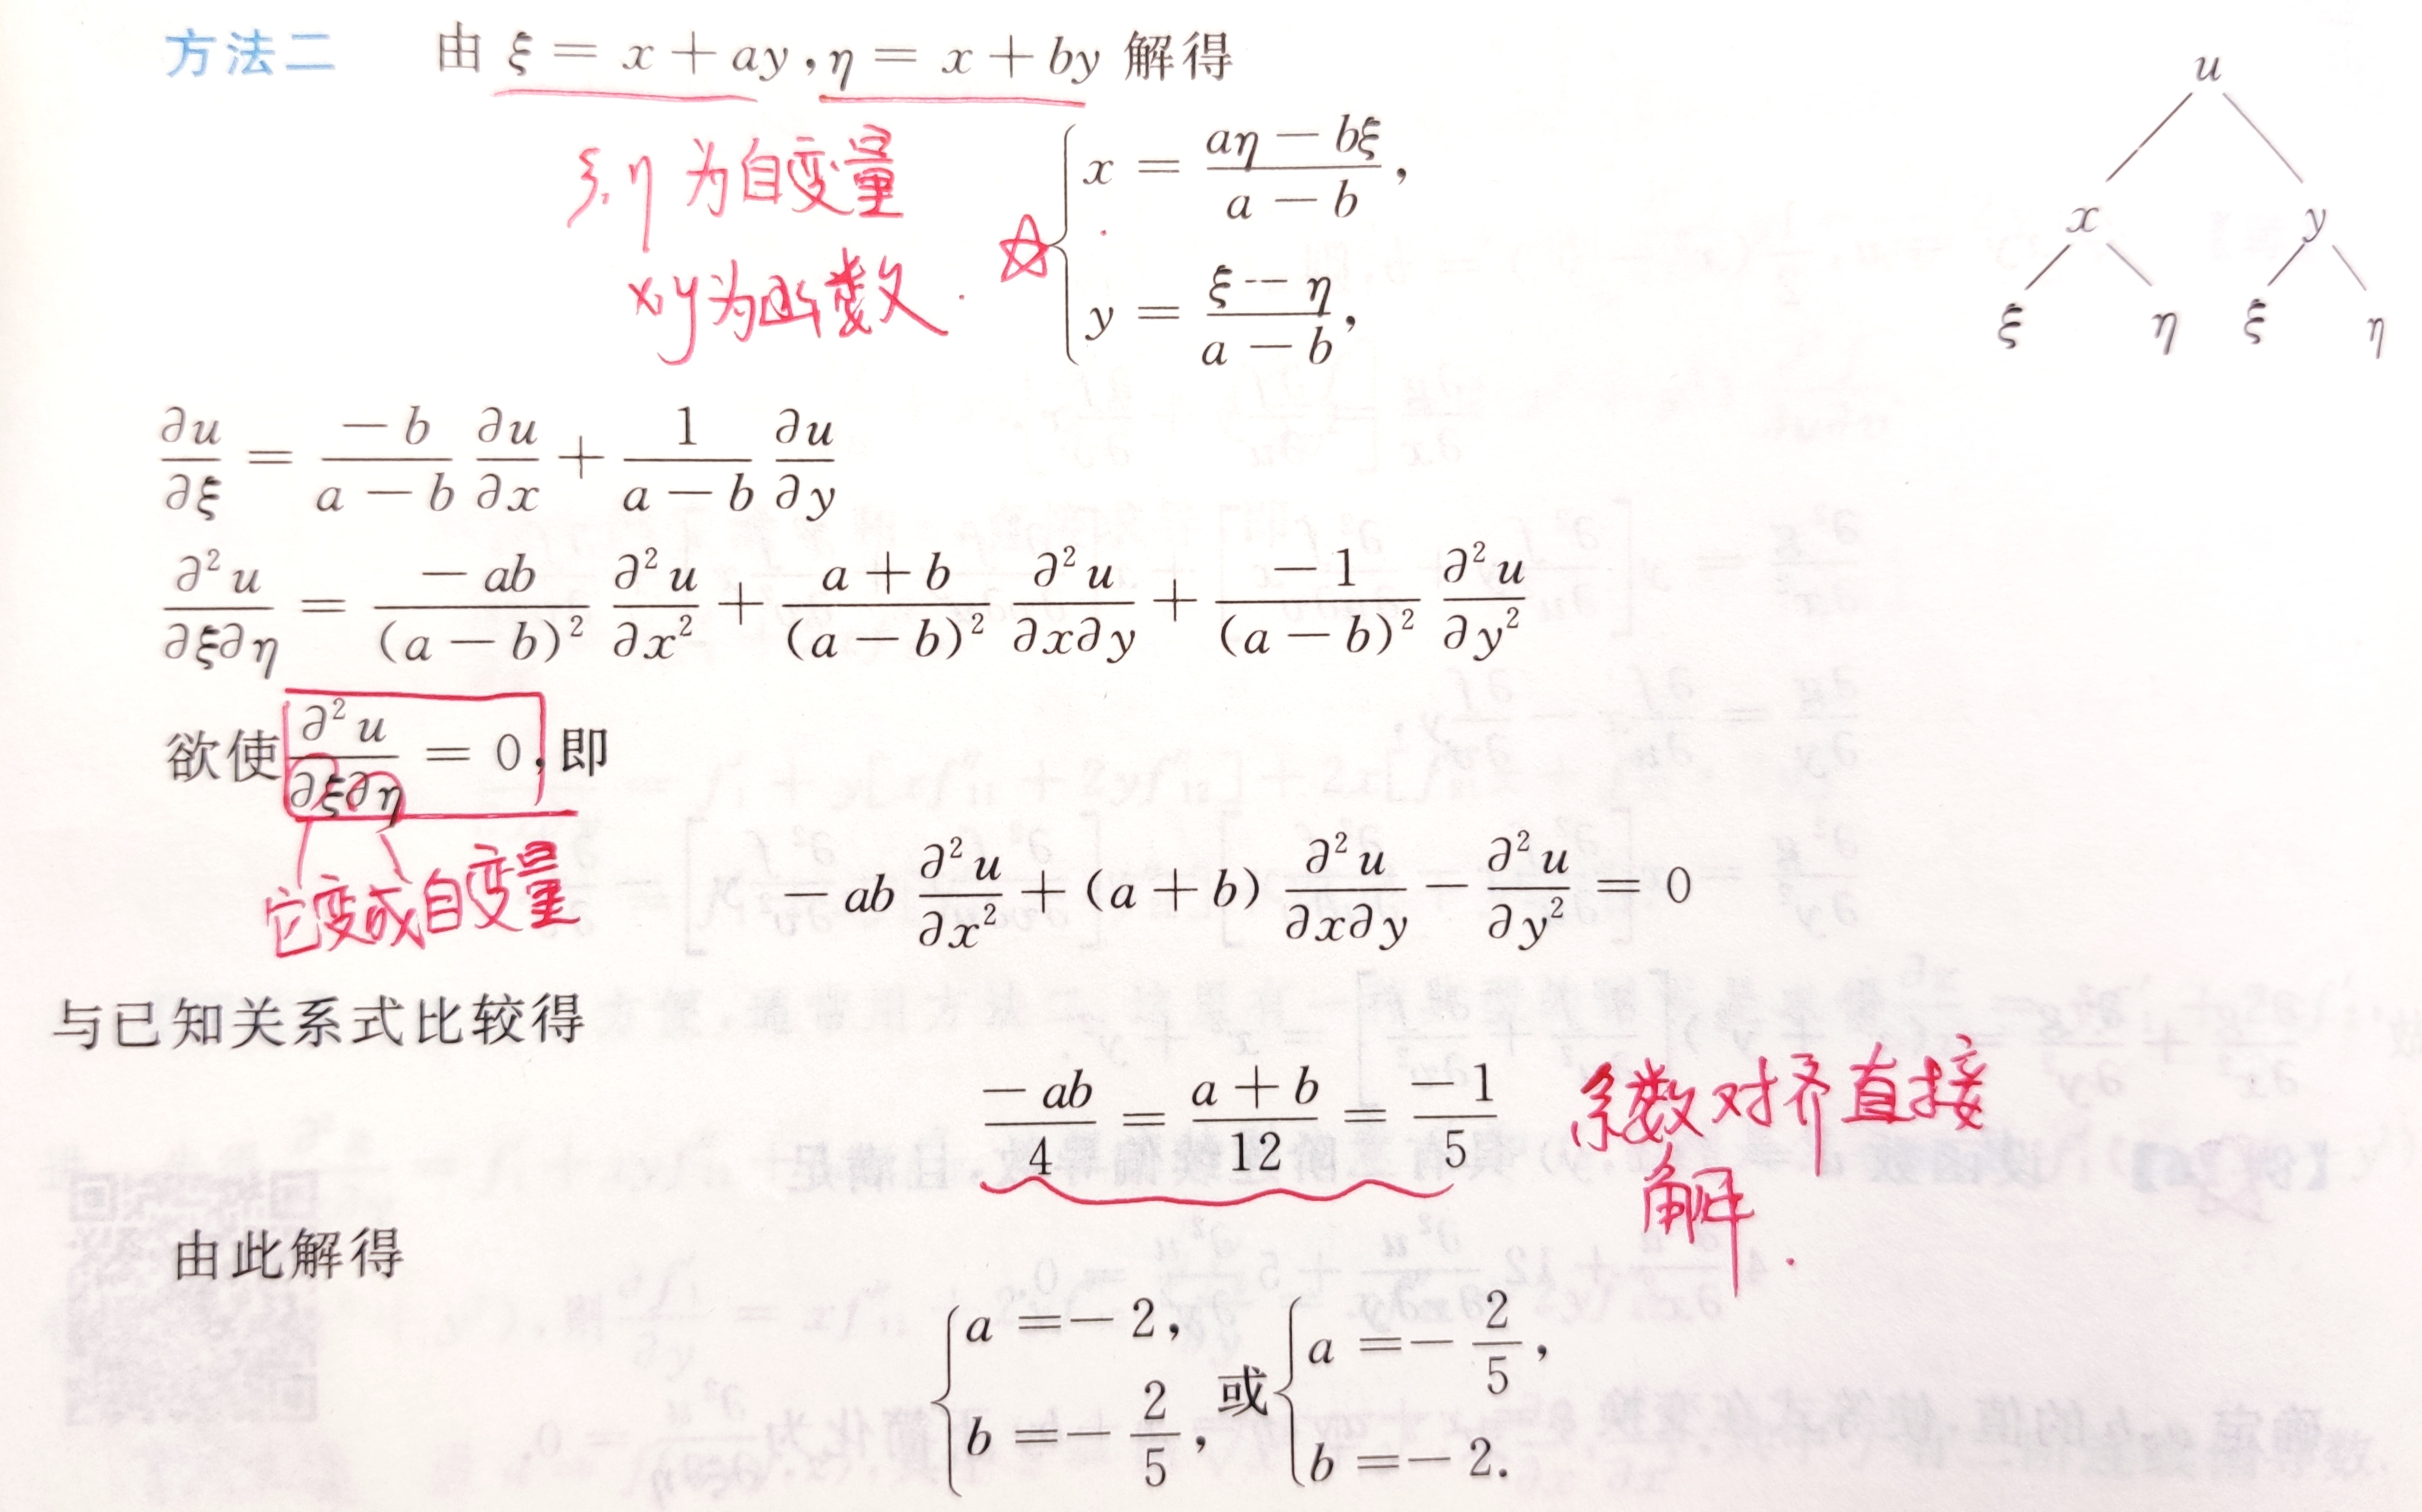 方法二 由 ξ = x + ay, η = x + by 解得
ξ, η 为自变量
x, y 为函数.
☆ { x = \frac{aη - bξ}{a - b},
y = \frac{ξ - η}{a - b},
u
x y
ξ η ξ η
\frac{∂u}{∂ξ} = \frac{-b}{a - b} \frac{∂u}{∂x} + \frac{1}{a - b} \frac{∂u}{∂y}
\frac{∂²u}{∂ξ∂η} = \frac{-ab}{(a - b)²} \frac{∂²u}{∂x²} + \frac{a + b}{(a - b)²} \frac{∂²u}{∂x∂y} + \frac{-1}{(a - b)²} \frac{∂²u}{∂y²}
欲使 \frac{∂²u}{∂ξ∂η} = 0, 即
它变成自变量
-ab \frac{∂²u}{∂x²} + (a + b) \frac{∂²u}{∂x∂y} - \frac{∂²u}{∂y²} = 0
与已知关系式比较得
\frac{-ab}{4} = \frac{a + b}{12} = \frac{-1}{5}
系数对齐直接
解.
由此解得
{ a = -2, b = -\frac{2}{5}, 或 { a = -\frac{2}{5}, b = -2.